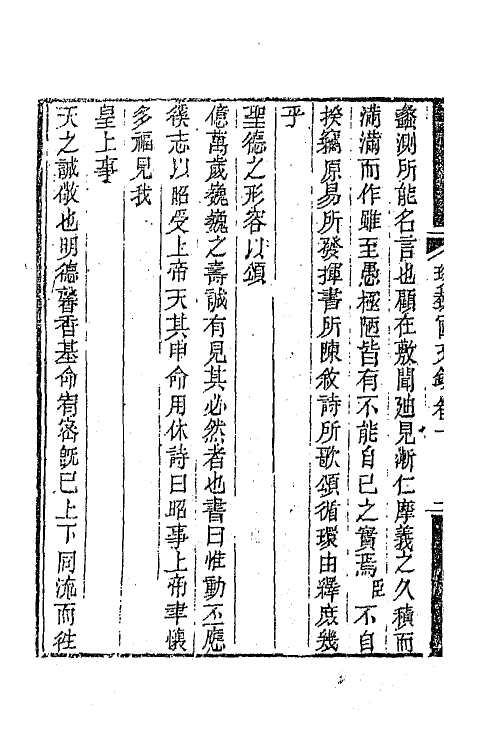 蠡測所能名言也顧在敷聞廸見漸仁摩義之久積而
滿滿而作雖至愚極陋皆有不能自已之實焉臣不自
揆竊原易所發揮書所陳敘詩所歌頌循環由繹庶幾
乎
聖德之形容以頌
億萬歲巍巍之壽誠有見其必然者也書曰惟動丕應
徯志以昭受上帝天其申命用休詩曰昭事上帝聿懷
多福見我
皇上事
天之誠敬也明德馨香基命宥宻旣已上下同流而往
文錄卷一
二